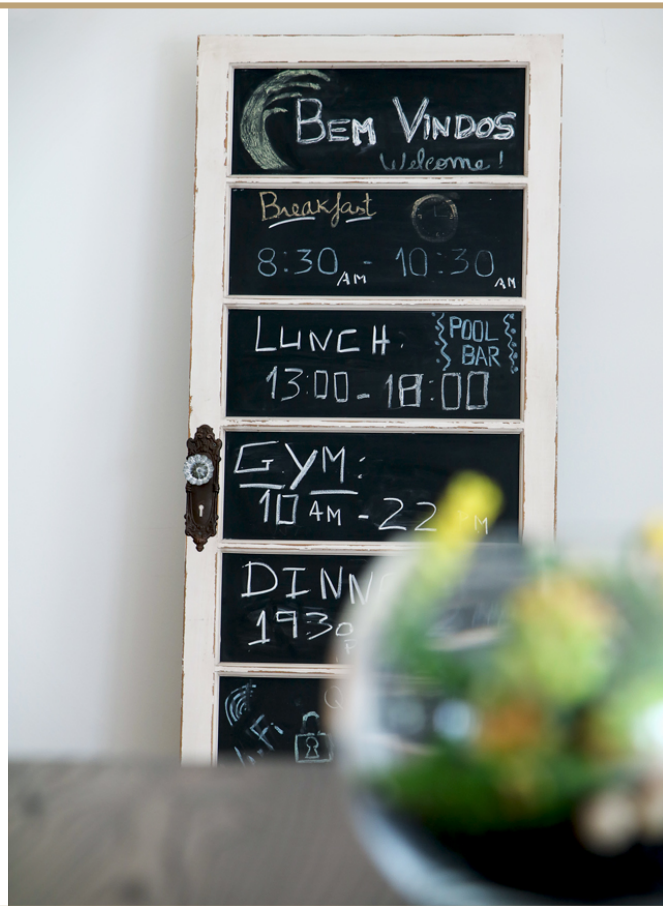 BEM VINDOS
Welcome!
Breakfast
8:30 AM - 10:30 AM
LUNCH.
POOL
BAR
13:00 - 18:00
GYM:
10 AM - 22
1930